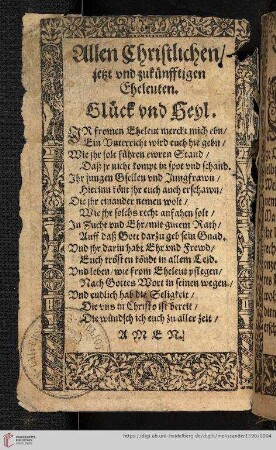 Allen Christlichen/
jetzt vnd zukünfftigen
Eheleuten.
Glück vnd Heyl.
IR fromen Eheleut merckt mich ebn/
Ein Vnterricht wird euch hie gebn/
Wie jhr solt führen ewren Stand/
Daß jr nicht kompt in spot vnd schand.
Ihr jungen Gsellen vnd Jungfrawn/
Hierinn könt jhr euch auch erschawn/
Die jhr einander nemen wolt/
Wie jhr solchs recht anfahen solt/
In Zucht vnd Ehr/ mit gutem Rath/
Auff daß Gott darzu geb sein Gnad.
Vnd jhr darin habt Ehr vnd Frewd/
Euch trösten köndt in allem Leid.
Vnd leben/ wie from Eheleut pflegen/
Nach Gottes Wort in seinen wegen.
Vnd endlich hab die Seligkeit/
Die vns in Christo ist bereit/
Die wündsch ich euch zu aller zeit/
A M E N.